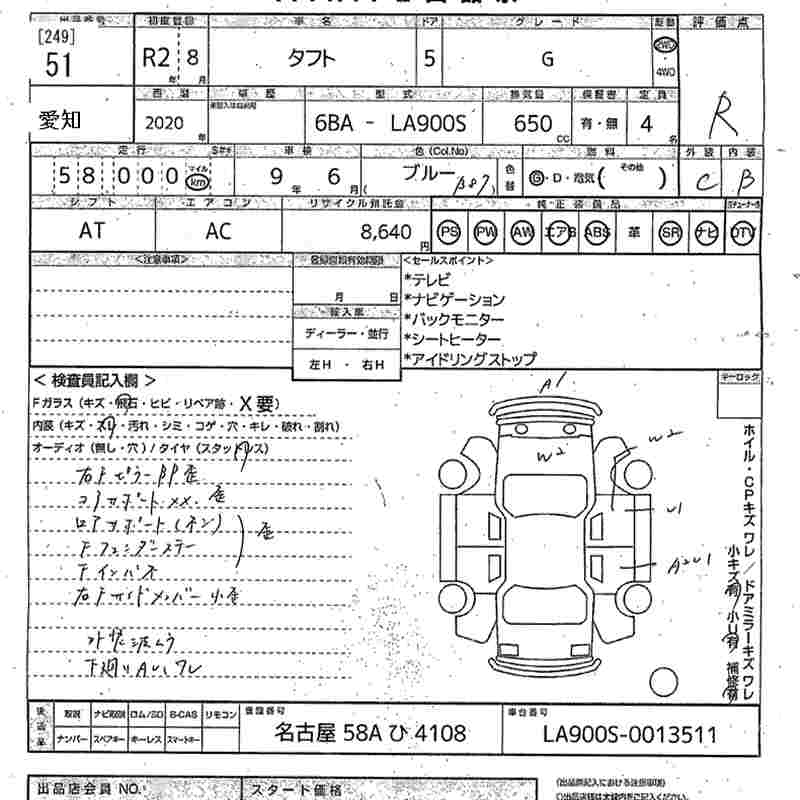 初度登録 車名 ドア グレード 駆動 評価点
[249]
51 R2 8 タフト 5 G 2WD
年 月 4WD
R
西暦 車歴 型式 排気量 保証書 定員
愛知 2020 年 6BA - LA900S 650 CC 有・無 4 名
走行 車検 色(Col.No) 燃料 外装 内装
58000 マイル km 9 年 6 月 ブルー (B87) 色替 G・D・電気( その他 ) C B
シフト エアコン リサイクル預託金 純正装備品
AT AC 8,640 円 PS PW AW エアB ABS 革 SR ナビ DTV
<注意事項> 登録書類有効期限 <セールスポイント>
月 日
*テレビ
*ナビゲーション
輸入車
*バックモニター
ディーラー・並行
*シートヒーター
左H ・ 右H
*アイドリングストップ
<検査員記入欄>
テーロック
Fガラス(キズ・飛石・ヒビ・リペア跡・X要)
内装(キズ・スレ・汚れ・シミ・コゲ・穴・キレ・破れ・割れ)
オーディオ(無し・穴)/タイヤ(スタッドレス)
右Fピラー
コアサポート
ロアサポート
Fフェンダーステー
Fインパネ
右Fサイドメンバー 小歪
外装波ムラ
下廻り
A1
W2
W2
U1
A2U1
ホイル・CPキズ ワレ/ドアミラーキズ ワレ
小キズ有/小U有/補修有
後送品 取説 ナビ取説 ロム/SD B-CAS リモコン 登録番号 車台番号
ナンバー スペアキー キーレス スマートキー 名古屋 58A ひ 4108 LA900S-0013511
出品店会員 NO. スタート価格
(出品票記入における注意事項)